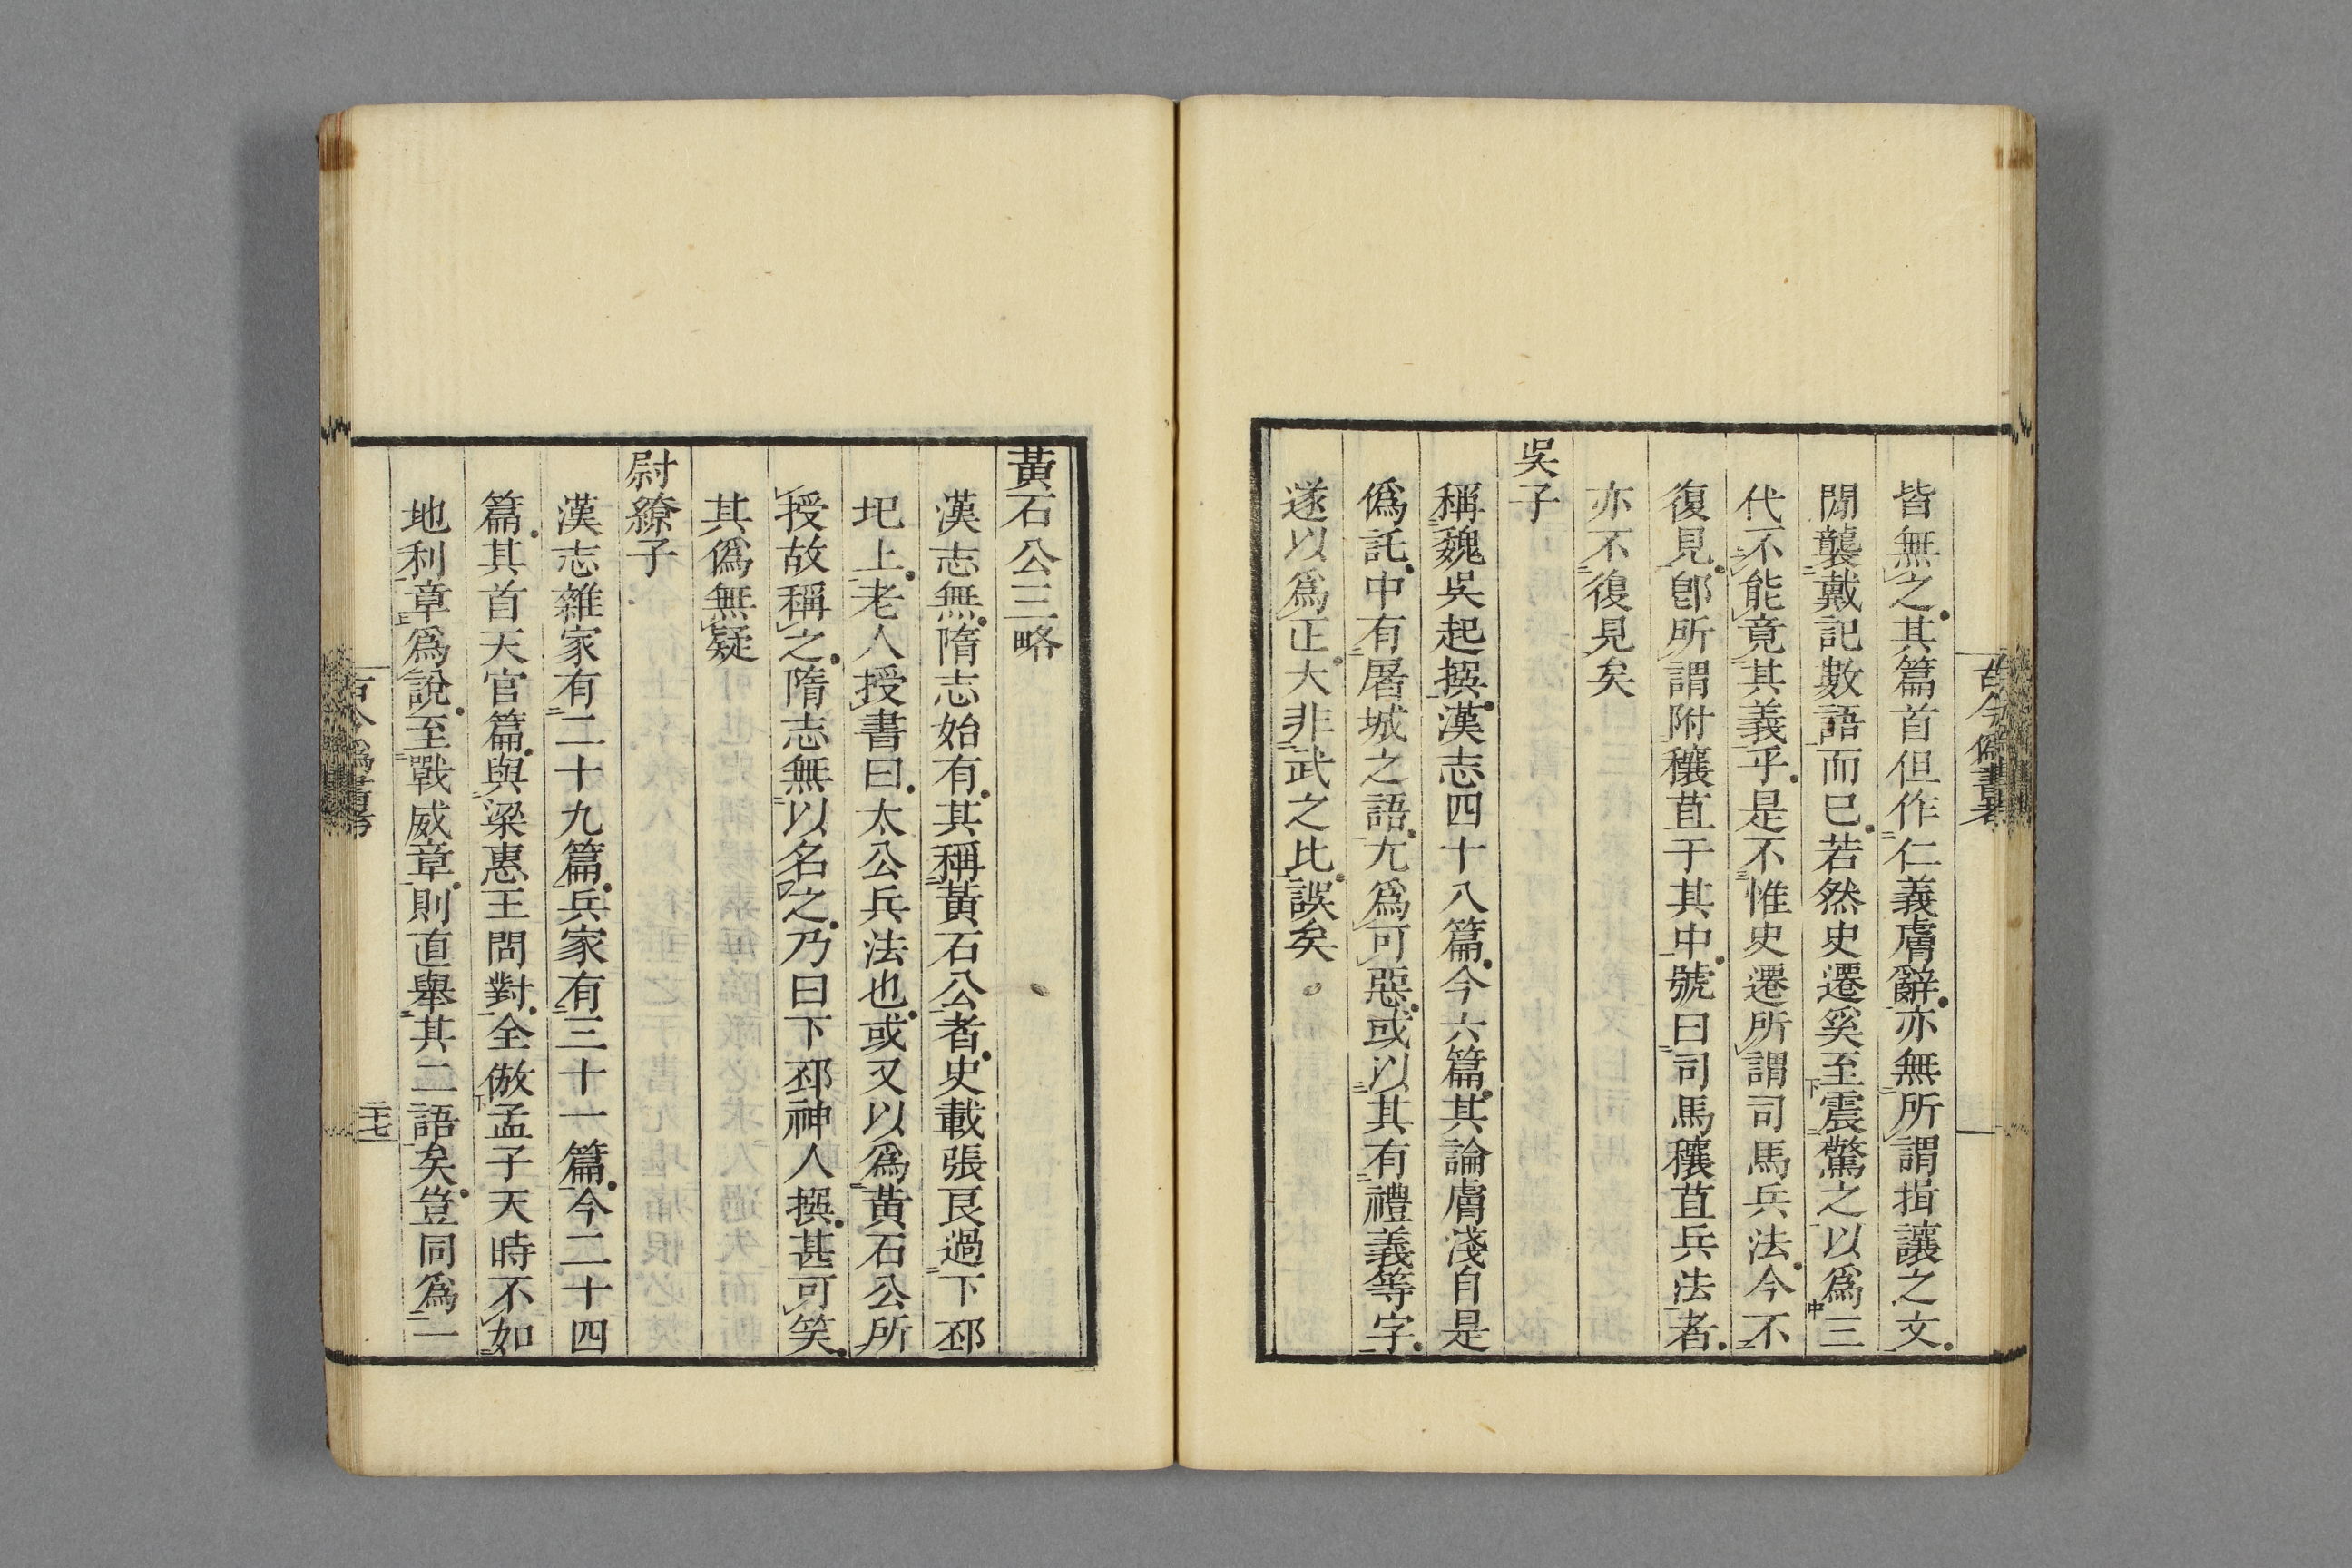 古今僞書考
皆無之其篇首但作仁義膚辭亦無所謂揖讓之文
閒襲戴記數語而已若然史遷奚至震驚之以爲三
代不能竟其義乎是不惟史遷所謂司馬兵法今不
復見卽所謂附穰苴于其中號曰司馬穰苴兵法者
亦不復見矣
吳子
稱魏吳起撰漢志四十八篇今六篇其論膚淺自是
僞託中有屠城之語尤爲可惡或以其有禮義等字
遂以爲正大非武之比誤矣
黃石公三略
漢志無隋志始有其稱黃石公者史載張良過下邳
圯上老人授書曰太公兵法也或又以爲黃石公所
授故稱之隋志無以名之乃曰下邳神人撰甚可笑
其僞無疑
尉繚子
漢志雜家有二十九篇兵家有三十一篇今二十四
篇其首天官篇與梁惠王問對全倣孟子天時不如
地利章爲說至戰威章則直舉其二語矣豈同爲一
古今僞書考
二十七